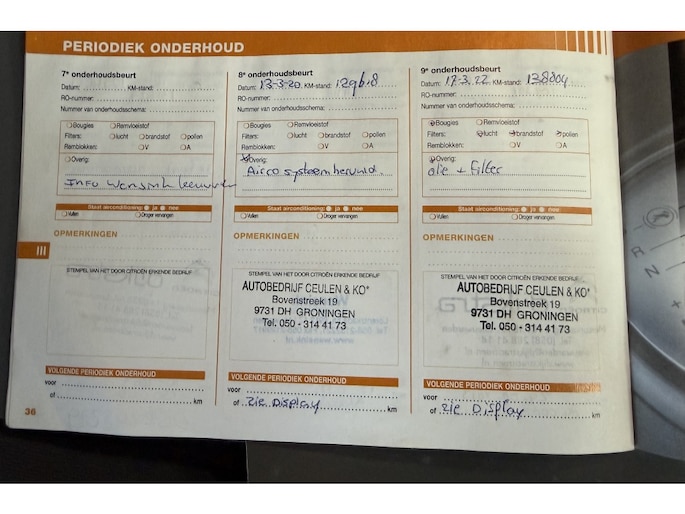 PERIODIEK ONDERHOUD
7e onderhoudsbeurt
Datum: KM-stand:
RO-nummer:
Nummer van onderhoudsschema:
Bougies Remvloeistof
Filters: lucht brandstof pollen
Remblokken: V A
Overig:
Info Wensink Leeuwarden
Staat airconditioning: ja nee
Vullen Droger vervangen
OPMERKINGEN
STEMPEL VAN HET DOOR CITROËN ERKENDE BEDRIJF
VOLGENDE PERIODIEK ONDERHOUD
voor
of km
36
III
8e onderhoudsbeurt
Datum: 13-3-20 KM-stand:
RO-nummer:
Nummer van onderhoudsschema:
Bougies Remvloeistof
Filters: lucht brandstof pollen
Remblokken: V A
Overig:
Airco systeem
Staat airconditioning: ja nee
Vullen Droger vervangen
OPMERKINGEN
STEMPEL VAN HET DOOR CITROËN ERKENDE BEDRIJF
AUTOBEDRIJF CEULEN & KO*
Bovenstreek 19
9731 DH GRONINGEN
Tel. 050 - 314 41 73
VOLGENDE PERIODIEK ONDERHOUD
voor
of zie Display km
9e onderhoudsbeurt
Datum: 17-3-22 KM-stand: 138804
RO-nummer:
Nummer van onderhoudsschema:
Bougies Remvloeistof
Filters: lucht brandstof pollen
Remblokken: V A
Overig:
olie + Filter
Staat airconditioning: ja nee
Vullen Droger vervangen
OPMERKINGEN
STEMPEL VAN HET DOOR CITROËN ERKENDE BEDRIJF
AUTOBEDRIJF CEULEN & KO*
Bovenstreek 19
9731 DH GRONINGEN
Tel. 050 - 314 41 73
VOLGENDE PERIODIEK ONDERHOUD
voor
of zie Display km
R N